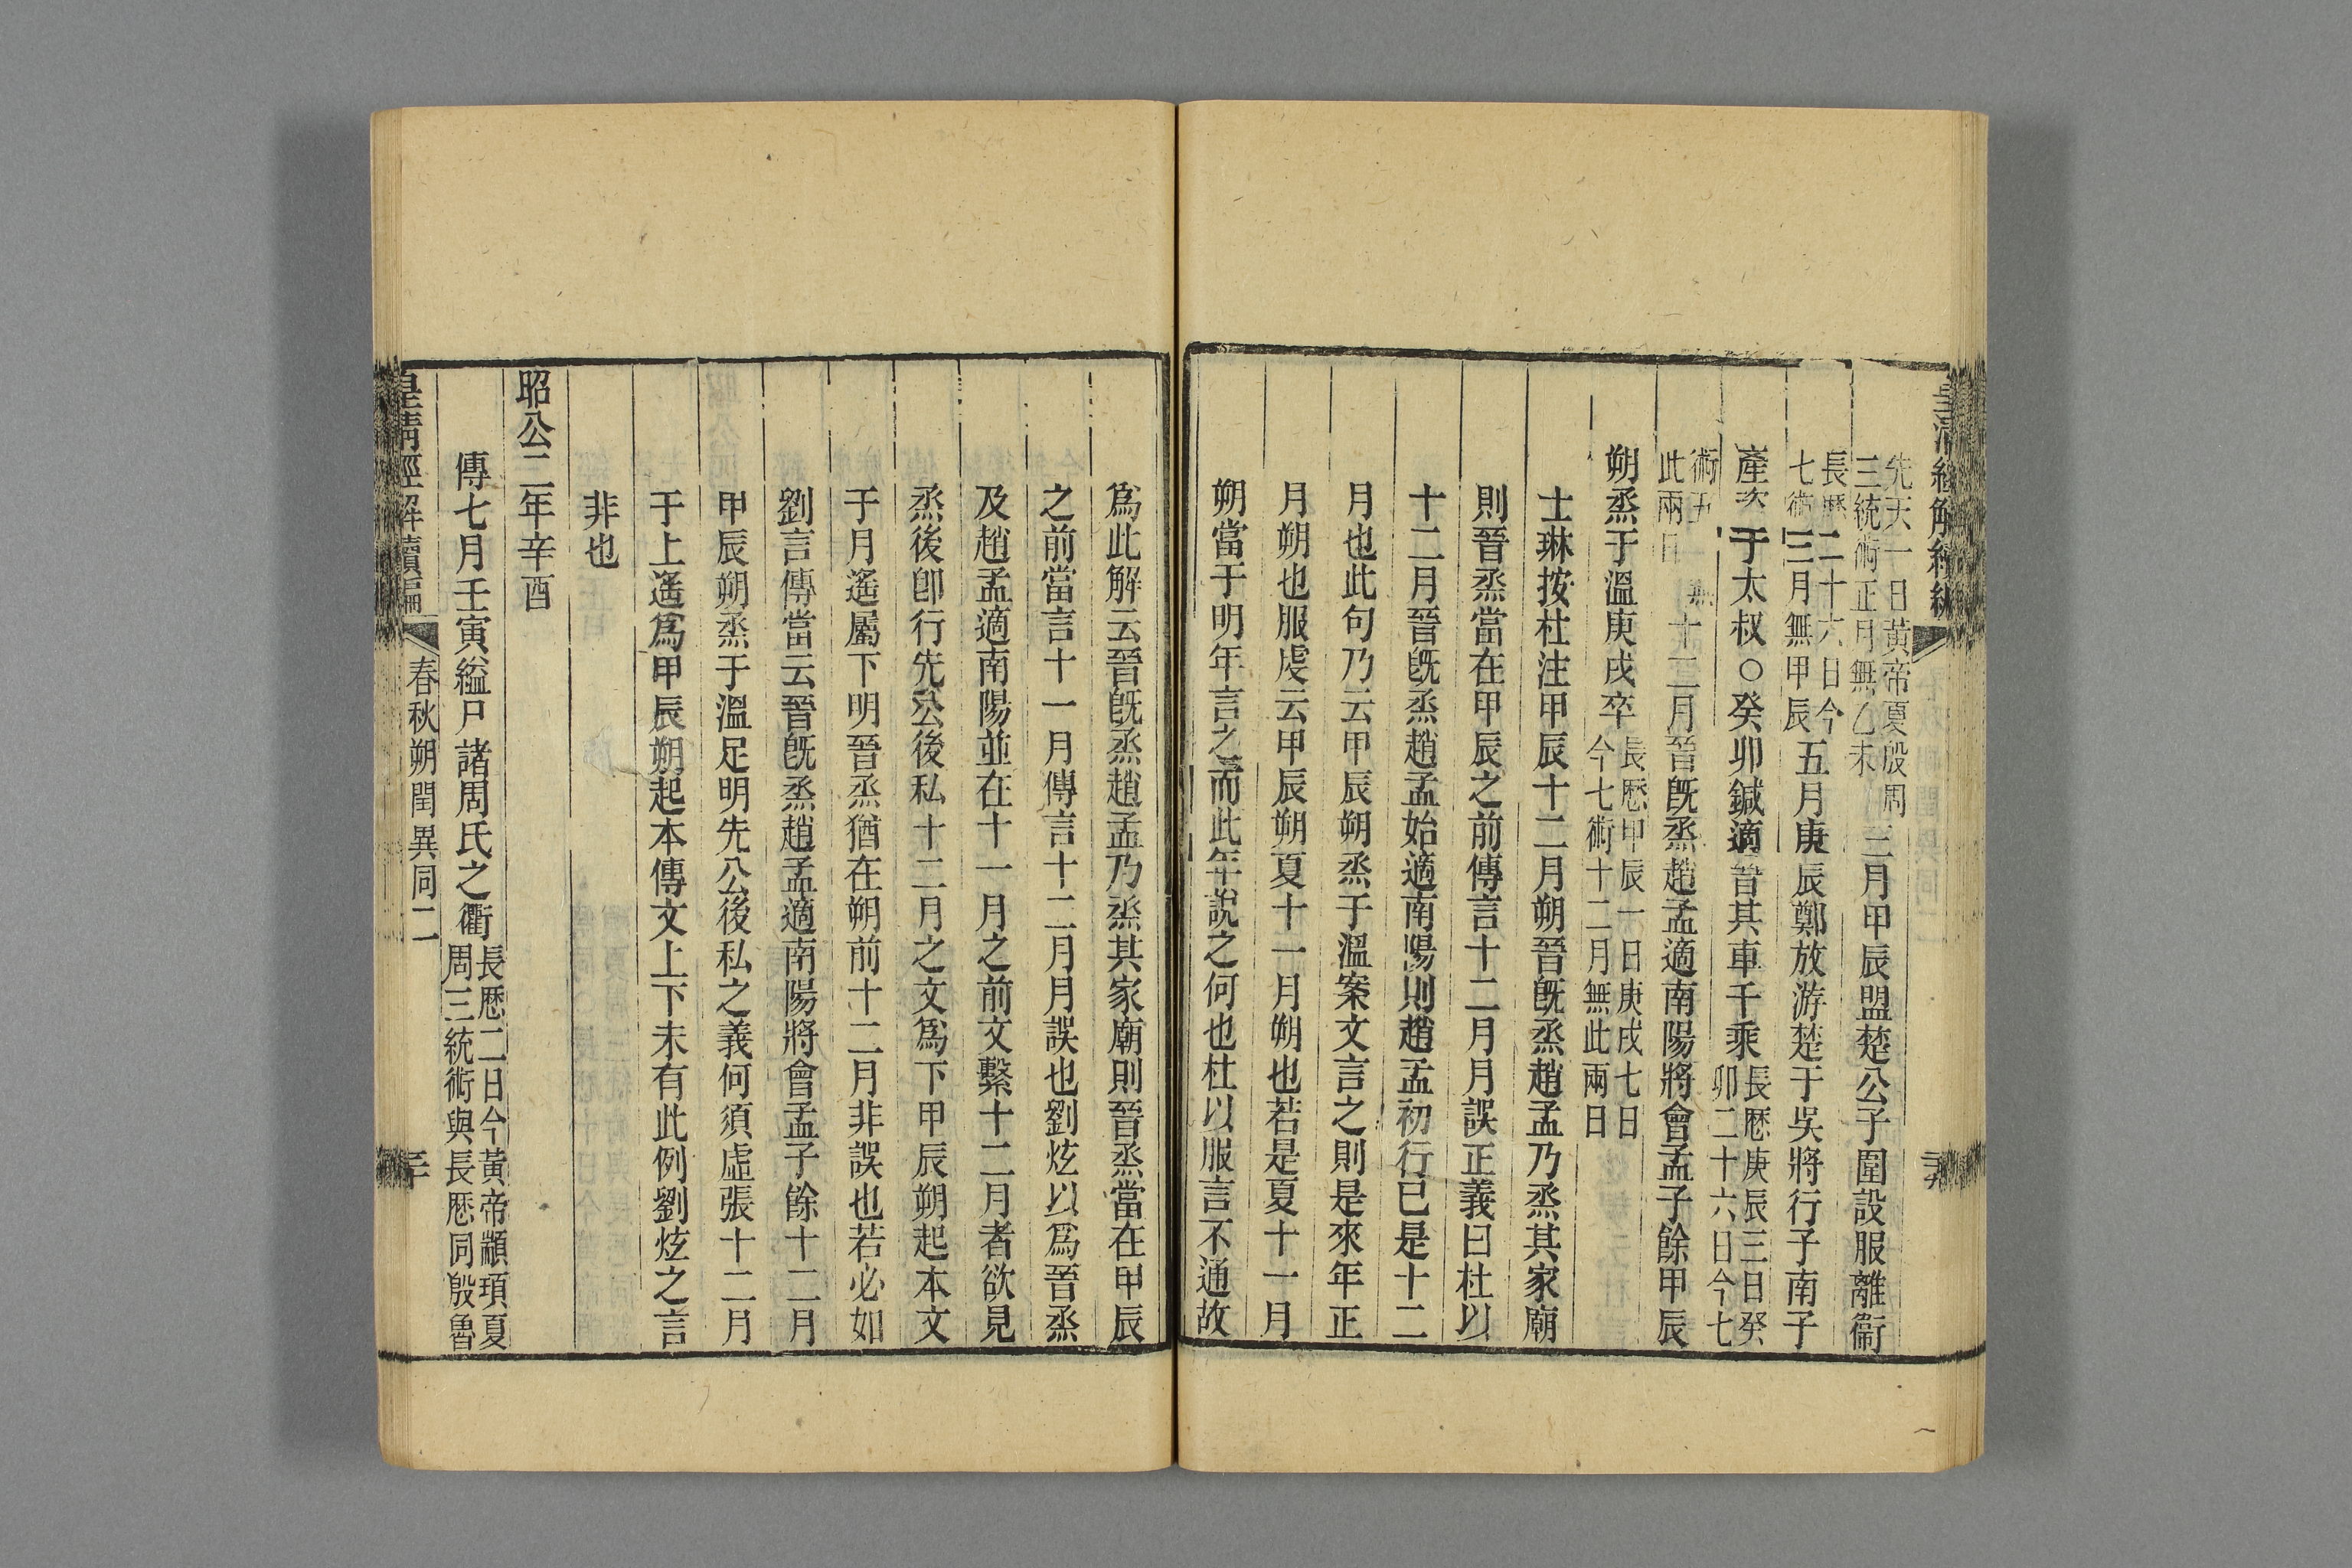 皇清經解續編
先天一日黃帝夏殷周
三統術正月無乙未
三月甲辰盟楚公子圍設服離衞
長厯二十六日今
七術三月無甲辰
五月庚辰鄭放游楚于吳將行子南子
產咨于太叔○癸卯鍼適晉其車千乘
長厯庚辰三日癸
卯二十六日今七
術五
無
此兩日
十二月晉旣烝趙孟適南陽將會孟子餘甲辰
朔烝于溫庚戌卒
長厯甲辰一日庚戌七日
今七術十二月無此兩日
士琳按杜注甲辰十二月朔晉旣烝趙孟乃烝其家廟
則晉烝當在甲辰之前傳言十二月月誤正義曰杜以
十二月晉旣烝趙孟始適南陽則趙孟初行已是十二
月也此句乃云甲辰朔烝于溫案文言之則是來年正
月朔也服虔云甲辰朔夏十一月朔也若是夏十一月
朔當于明年言之而此年說之何也杜以服言不通故
爲此解云晉旣烝趙孟乃烝其家廟則晉烝當在甲辰
之前當言十一月傳言十二月月誤也劉炫以爲晉烝
及趙孟適南陽並在十一月之前文繫十二月者欲見
烝後卽行先公後私十二月之文爲下甲辰朔起本文
于月遙屬下明晉烝猶在朔前十二月非誤也若必如
劉言傳當云晉旣烝趙孟適南陽將會孟子餘十二月
甲辰朔烝于溫足明先公後私之義何須虛張十二月
于上遙爲甲辰朔起本傳文上下未有此例劉炫之言
非也
昭公二年辛酉
傳七月壬寅縊尸諸周氏之衢
長厯二日今黃帝顓頊夏
周三統術與長厯同殷魯
皇清經解續編
春秋朔閏異同二